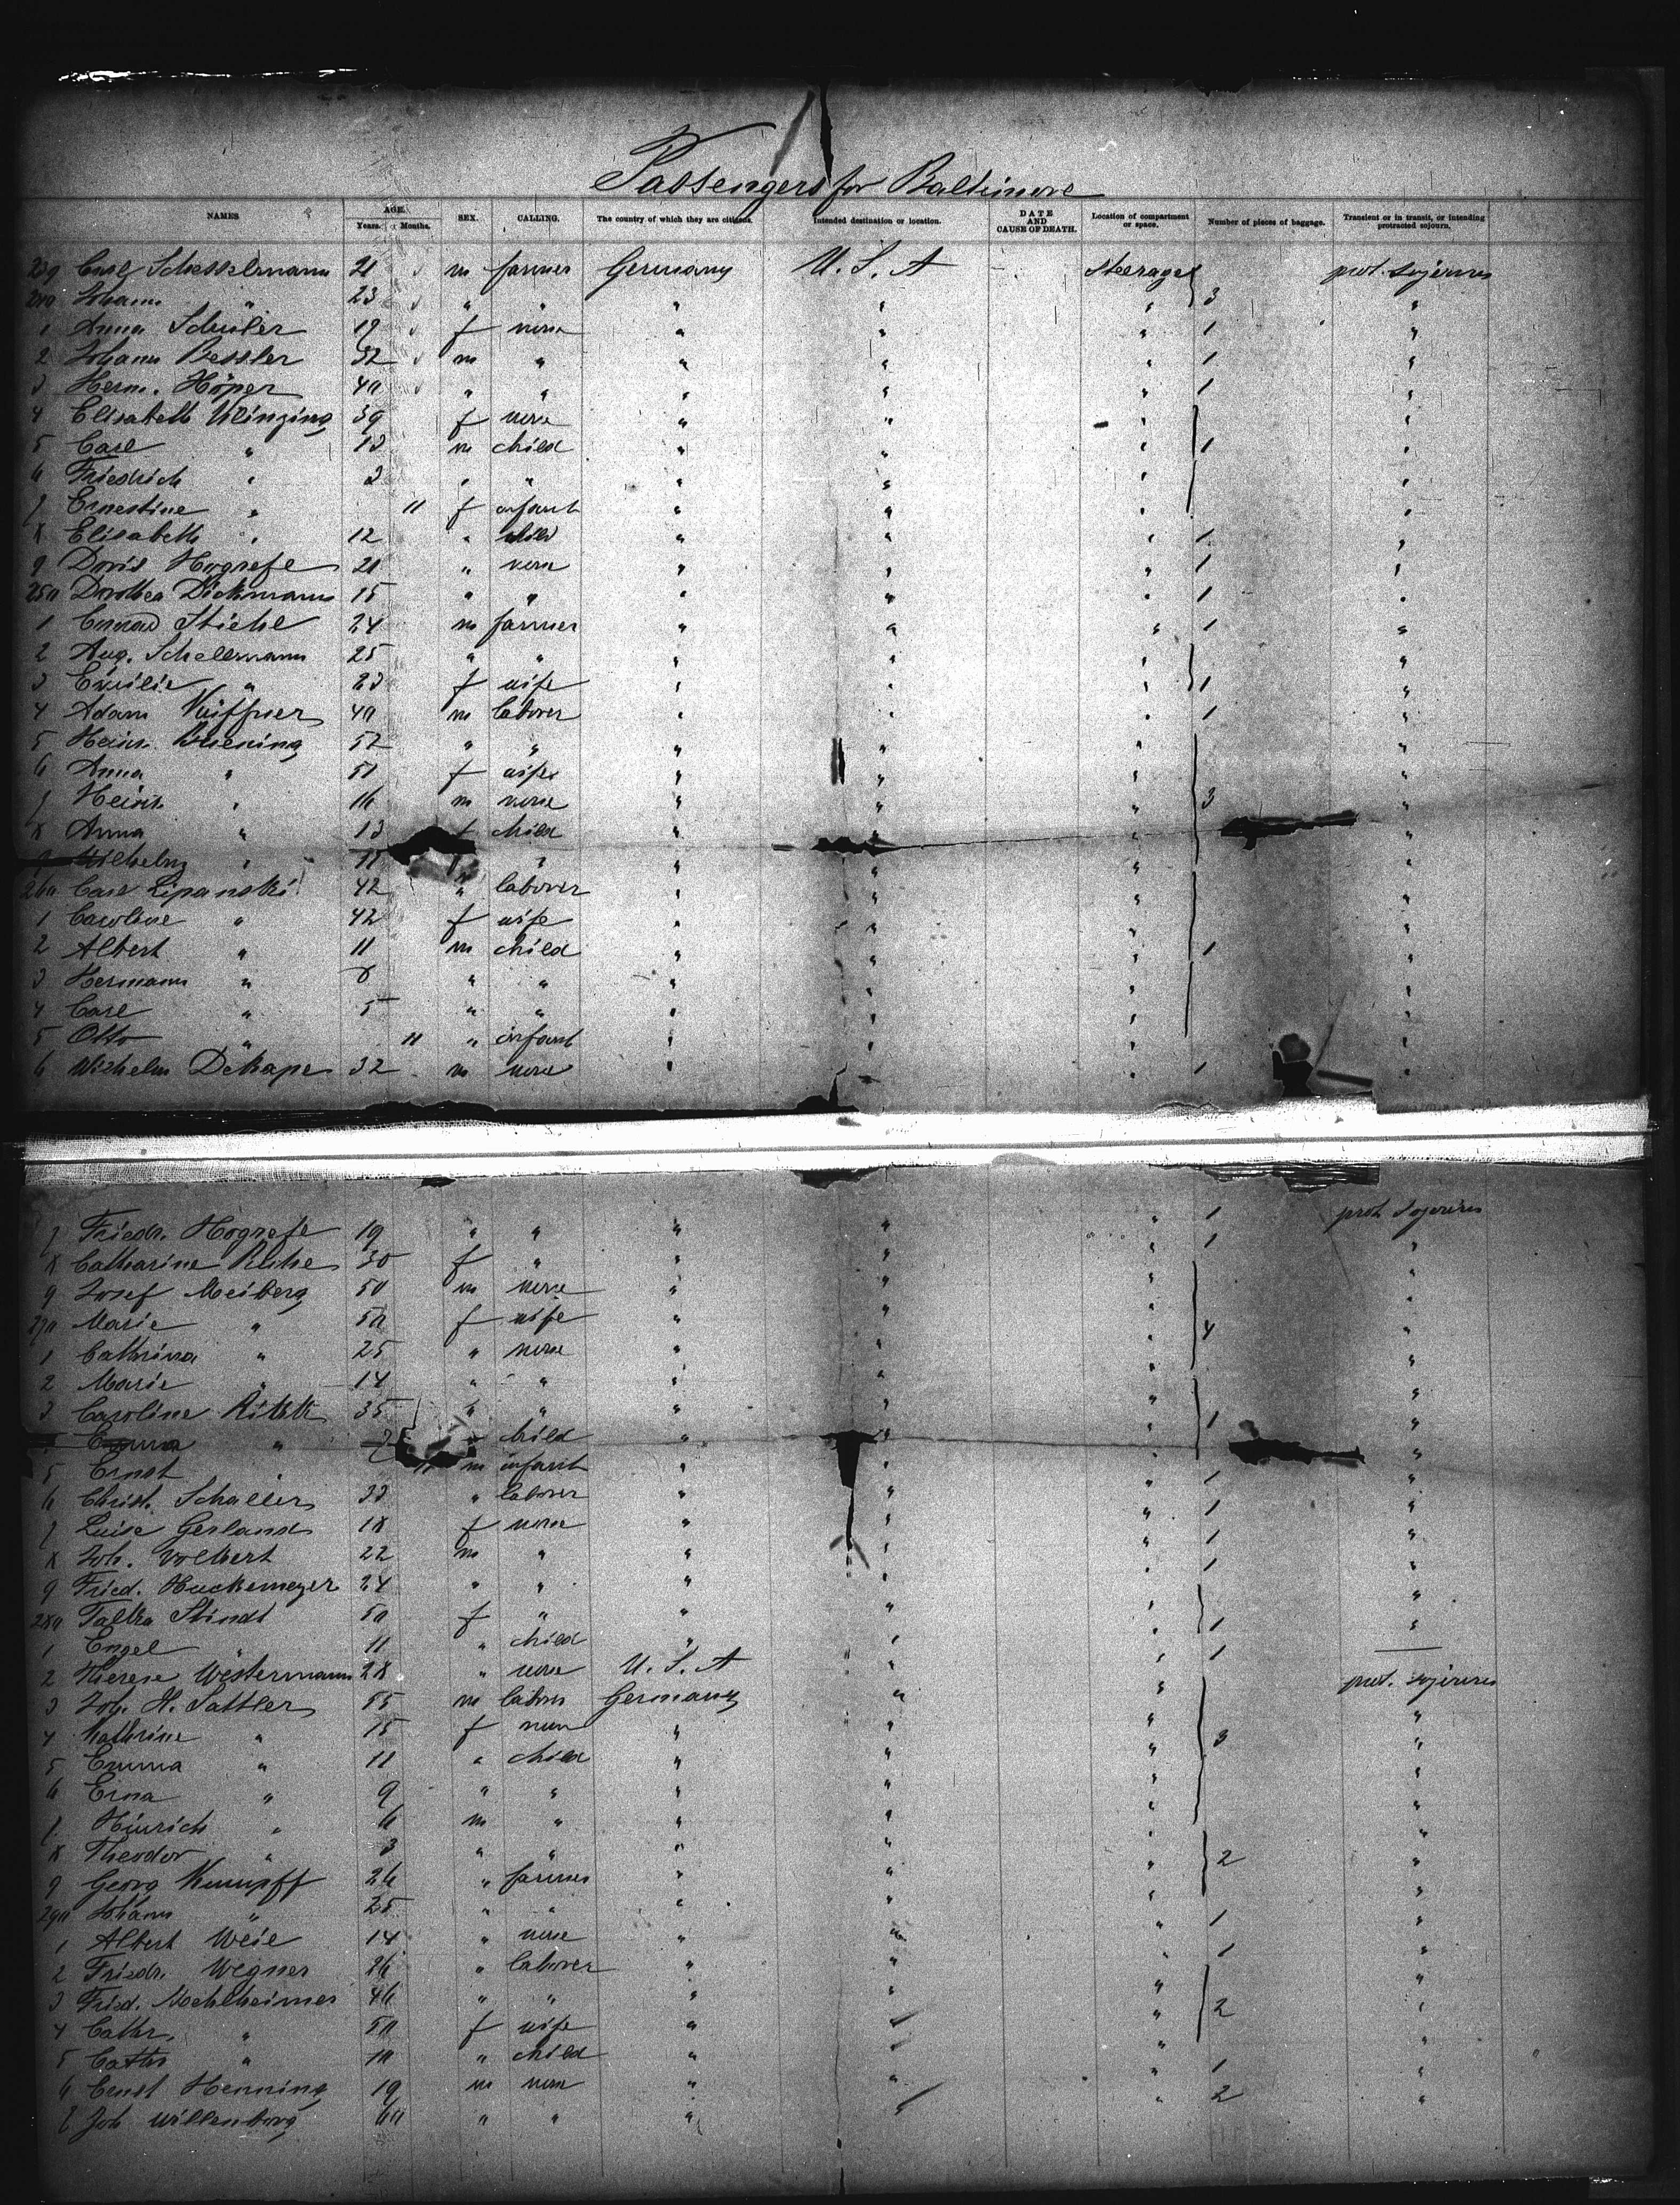 Passengers for Baltimore
NAMES AGE. Years. Months. SEX. CALLING. The country of which they are citizens. Intended destination or location. DATE AND CAUSE OF DEATH. Location of compartment or space. Number of pieces of baggage. Transient or in transit, or intending protracted sojourn.
239 Carl Schesselmann 21 m farmer Germany U. S. A steerage prot. sojourn
240 Johann " 23 " " " " " 3 "
1 Anna Schüler 19 f none " " " 1 "
2 Johann Bessler 32 m " " " " 1 "
3 Herm. Höper 40 " " " " " 1 "
4 Elisabeth 39 f none " " " "
5 Carl " 13 m child " " " 1 "
6 Friedrich " 3 " " " " " "
7 Ernestine " 11 f infant " " " "
8 Elisabeth " 12 " child " " " 1 "
9 Doris Hogrefe 21 " none " " " 1 "
250 Dorothea Dickmann 15 " " " " " 1 "
1 Conrad Stichl 24 m farmer " " " 1 "
2 Aug. Schellmann 25 " " " " " "
3 Emilie " 23 f wife " " " 1 "
4 Adam 40 m laborer " " " 1 "
5 Heinr. 52 " " " " " "
6 Anna " 51 f wife " " " "
7 Heinr. " 16 m none " " " 3 "
8 Anna " 13 f child " " " "
9 Wilhelm " 11 " " " " "
260 Carl Lipanski 42 " laborer " " " "
1 Caroline " 42 f wife " " " "
2 Albert " 11 m child " " " 1 "
3 Hermann " 8 " " " " " "
4 Carl " 5 " " " " " "
5 Otto " 11 " infant " " " "
6 Wilhelm Dekape 32 m none " " " 1 "
7 Friedr. Hogrefe 19 " " " " " 1 prot. sojourn
8 Catharine 30 f " " " " 1 "
9 Josef Meiberg 50 m none " " " "
270 Marie " 50 f wife " " " 4 "
1 Cathrina " 25 " none " " " "
2 Marie " 14 " " " " " "
3 Caroline 35 " " " " " 1 "
Emma " 2 child " " " "
5 Ernst " 11 m infant " " " "
6 Christ. Schaller 33 " laborer " " " 1 "
7 Luise Gerland 18 f none " " " 1 "
8 Joh. Volkert 22 m " " " " 1 "
9 Fried. Huckemeyer 24 " " " " " 1 "
280 Talka Stindt 50 f " " " " "
1 Engel " 11 " child " " " 1 "
2 Therese Westermann 28 " none U. S. A " " 1 —
3 Joh. H. Sattler 55 m laborer Germany " " prot. sojourn
4 Kathrine " 15 f none " " " "
5 Emma " 11 " child " " " 3 "
6 Erna " 9 " " " " " "
7 Hinrich " 6 m " " " " "
8 Theodor " 3 " " " " " "
9 Georg Kumpff 26 " farmer " " " 2 "
290 Johann " 25 " " " " " "
1 Albert Weie 14 " none " " " 1 "
2 Friedr. Wegner 26 " laborer " " " 1 "
3 Fried. Mehlheimer 46 " " " " " "
4 Cathr. " 50 f wife " " " 2 "
5 Cathr " 10 " child " " " "
6 Ernst Henning 19 m none " " " 1 "
7 Joh Willenborg 60 " " " " " 2 "